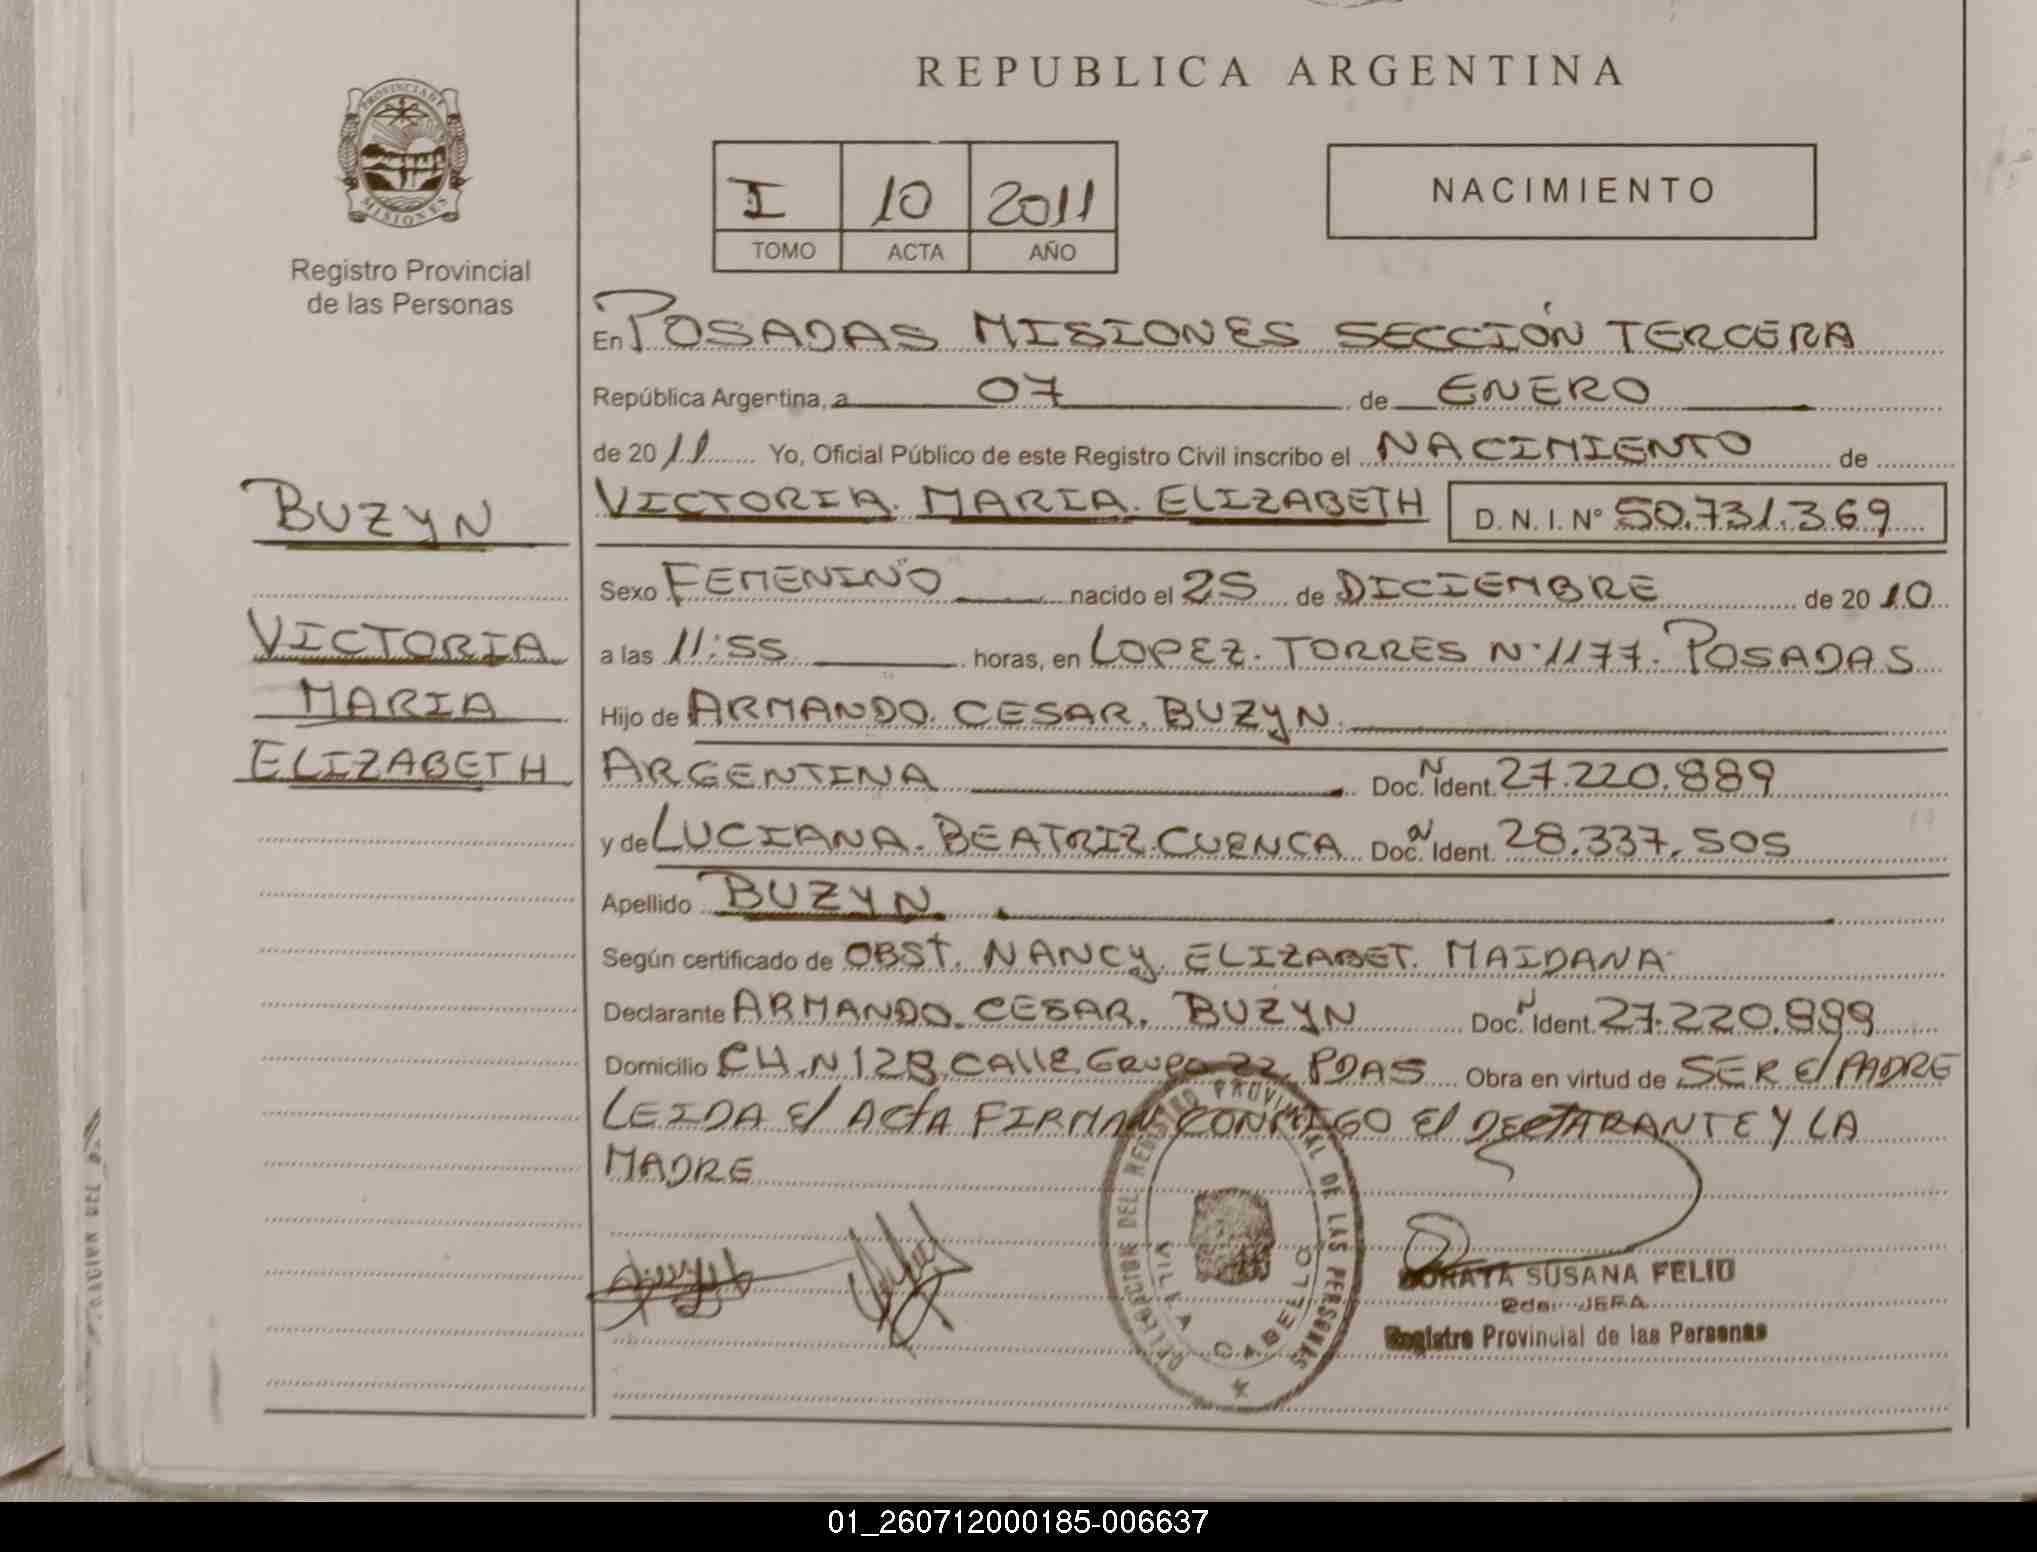 PROVINCIA DE
MISIONES
Registro Provincial
de las Personas
BUZYN
VICTORIA
MARIA
ELIZABETH
REPUBLICA ARGENTINA
I 10 2011
TOMO ACTA AÑO
NACIMIENTO
En POSADAS MISIONES SECCIÓN TERCERA
República Argentina, a 07 de ENERO
de 2011 Yo, Oficial Público de este Registro Civil inscribo el NACIMIENTO de
VICTORIA. MARIA. ELIZABETH D. N. I. N° 50.731.369
Sexo FEMENINO nacido el 25 de DICIEMBRE de 2010
a las 11:55 horas, en LOPEZ. TORRES N°1177. POSADAS
Hijo de ARMANDO. CESAR. BUZYN
ARGENTINA Doc. N Ident. 27.220.889
y de LUCIANA. BEATRIZ. CUENCA Doc. N Ident. 28.337.505
Apellido BUZYN
Según certificado de OBST. NANCY. ELIZABET. MAIDANA
Declarante ARMANDO. CESAR. BUZYN Doc. N Ident. 27.220.889
Domicilio CH. N 128 CALLE GRUPO 22 PDAS Obra en virtud de SER El PADRE
LEIDA El ACTA FIRMAN CONMIGO El DECTARANTE Y LA
MADRE
DEL REGISTRO PROVINCIAL DE LAS PERSONAS
VILLA CABELLO
SORAYA SUSANA FELIU
2da. JEFA
Registro Provincial de las Personas
01_260712000185-006637